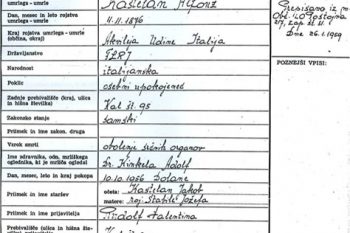 umrlega - umrle
Kastelan Alfonz
Dan, mesec in leto rojstva
umrlega - umrle
11. 11. 1896
Kraj rojstva umrlega - umrle
(občina, okraj)
Udine Italija
Državljanstvo
FLRJ
Narodnost
italijanska
Poklic
osebni upokojenec
Zadnje prebivališče (kraj, ulica
in hišna številka)
Kal št. 95
Zakonsko stanje
samski
Priimek in ime zakon. druga
Vzrok smrti
obolenje srčnih organov
Ime zdravnika, odn. mrliškega
oglednika, ki je mrliča ogledal
Dr. Kinkela Adolf
Dan, mesec, leto in kraj pokopa
10. 10. 1956
Priimek in ime staršev
očeta: Kastelan Jakob
matere: roj. Stabile Jožefa
Priimek in ime prijavitelja
Valentina
Prebivališče (ulica in hišna šte-
Prepisano iz
Postojna
Dne 26. 1. 1959
POZNEJŠI VPISI: